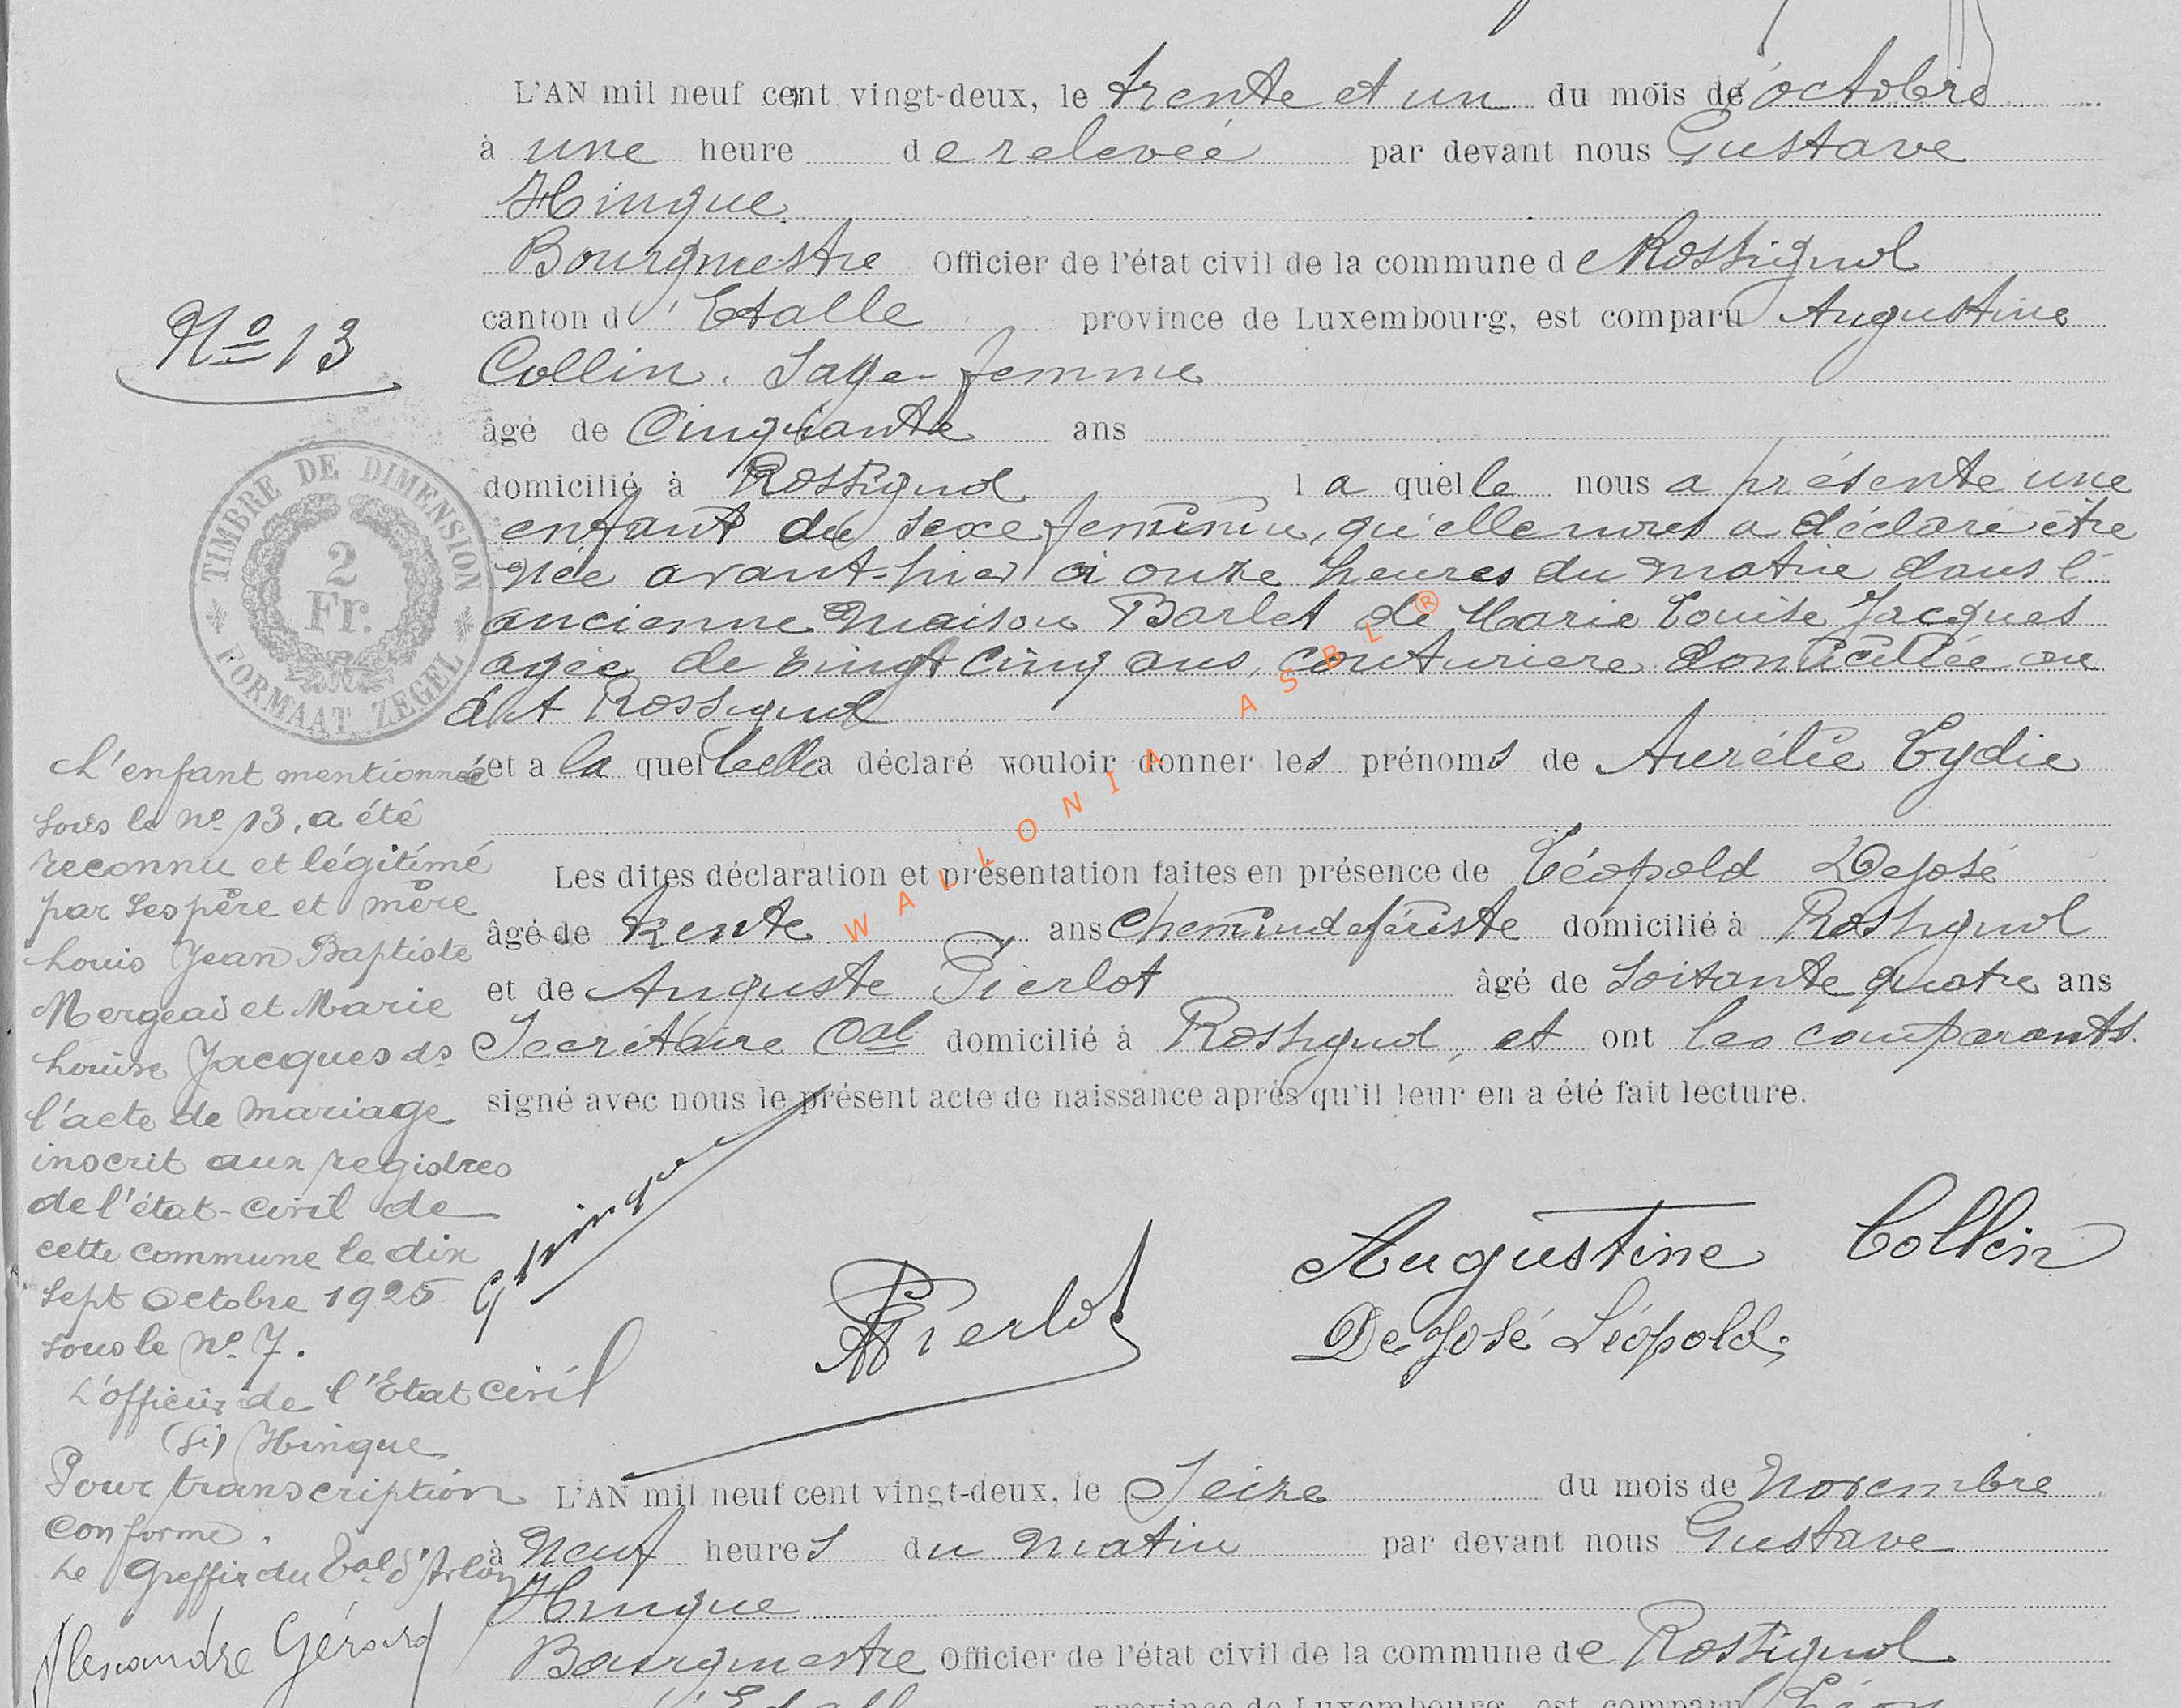 L'AN mil neuf cent vingt-deux, le trente et un du mois de octobre
à une heure de relevée par devant nous Gustave
Hinque
Bourgmestre Officier de l'état civil de la commune de Rossignol
canton d'Etalle province de Luxembourg, est comparu Augustine
Collin. Sage-femme
âgé de Cinquante ans
domicilié à Rossignol laquelle nous a présenté une
enfant du sexe feminin, qu'elle nous a déclaré être
née avant-hier à onze heures du matin dans l'
ancienne maison Barlet de Marie Louise Jacques
agée de vingt cinq ans, couturiere domiciliée au
dit Rossignol
et a la quelle elle a déclaré vouloir donner les prénoms de Aurélie Lydie
Les dites déclaration et présentation faites en présence de Léopold Dejosé
âgé de trente ans chemindefériste domicilié à Rossignol
et de Auguste Pierlot âgé de soixante quatre ans
Secrétaire Cal domicilié à Rossignol, et ont les comparants
signé avec nous le présent acte de naissance après qu'il leur en a été fait lecture.
No 13
TIMBRE DE DIMENSION
2
Fr.
FORMAAT ZEGEL
L'enfant mentionnée
sous le no 13, a été
reconnu et légitimé
par ses père et mère
Louis Jean Baptiste
Mergeai et Marie
Louise Jacques ds
l'acte de mariage
inscrit aux registres
de l'état-civil de
cette commune le dix
sept Octobre 1925
sous le No 7.
L'officier de l'Etat civil
(si) Hinque
Pour transcription
conforme.
Le Greffier du Tal d'Arlon
Alexandre Gérard
GHinque
APierlot
Augustine Collin
DeJosé Léopold
WALLONIA ASBL ®
L'AN mil neuf cent vingt-deux, le Seize du mois de Novembre
à Neuf heures du matin par devant nous Gustave
Hinque
Bourgmestre Officier de l'état civil de la commune de Rossignol
d'Etalle province de Luxembourg, est comparu Léon